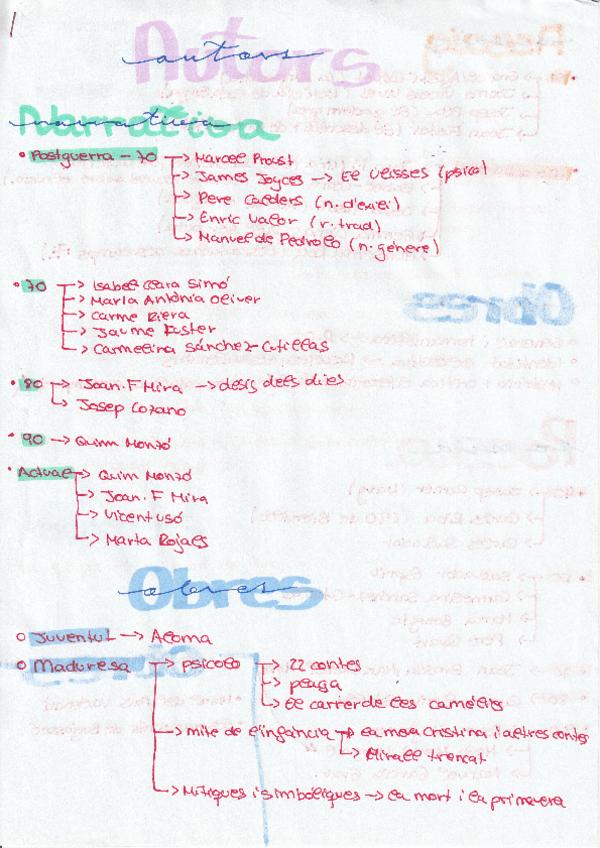 Autors
autors
Narrativa
narrativa
• Postguerra - 70 -> Marcel Proust
-> James Joyces -> El Ulisses (psico)
-> Pere Calders (n. d'exili)
-> Enric Valor (r. trad)
-> Manuel de Pedrolo (n. gènere)
• 70 -> Isabel Clara Simó
-> Maria Antònia Oliver
-> Carme Riera
-> Jaume Fuster
-> Carmelina Sánchez-Cutillas
• 80 -> Joan. F Mira -> desig dels dies
-> Josep Lozano
• 90 -> Quim Monzó
• Actual -> Quim Monzó
-> Joan. F Mira
-> Vicent usó
-> Marta Rojals
Obres
obres
o Juventut -> Aloma
o Maduresa -> psicolo -> 22 contes
-> plaça
-> el carrer de les camèlies
-> mite de l'infància -> la meva cristina i altres contes
-> Mirall trencat
-> Mítiques i simbòliques -> la mort i la primavera